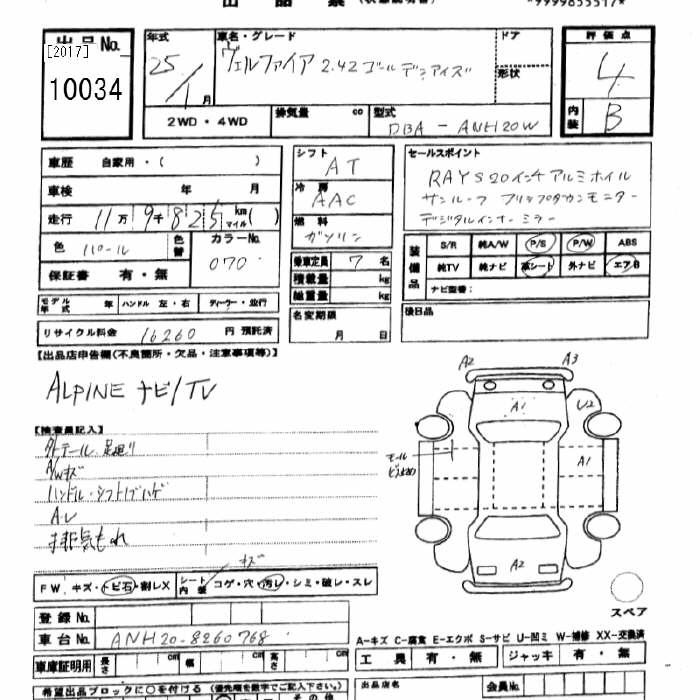 出品票
*9999855517*
出品No.
[2017]
10034
年式
25/1月
車名・グレード
ヴェルファイア 2.4Z ゴールデンアイズ
ドア
形状
評価点
4
内装
B
2WD・4WD
排気量 cc
型式
DBA - ANH20W
車歴 自家用・( )
車検 年 月
走行 11万9千825km マイル( )
色 パール
色替
カラーNo.
070
保証書 有・無
モデル年式 年 ハンドル 左・右 ディーラー・並行
リサイクル料金 16260 円 預託済
シフト
AT
冷房
AAC
燃料
ガソリン
乗車定員 7 名
積載量 kg
総重量 kg
名変期限
月 日
セールスポイント
RAYS20インチアルミホイル
サンルーフ フリップダウンモニター
デジタルインナーミラー
装備品
S/R 純A/W P/S P/W ABS
純TV 純ナビ 革シート 外ナビ エアB
ナビ型番:
後日品
【出品店申告欄(不良箇所・欠品・注意事項等)】
ALPINE ナビ/TV
【検査員記入】
外テール、足廻り
A/Wキズ
ハンドル・シフトノブハゲ
AU
排気もれ
キズ
FW. キズ・トビ石・割レX
シート内装 コゲ・穴・汚レ・シミ・破レ・スレ
登録No.
車台No. ANH20-8260768
車庫証明用 長さ cm 幅 cm 高さ cm
希望出品ブロックに○を付ける (優先順を数字でご記入下さい。)
その他
A2
A3
A1
U2
モール
A1
A2
スペア
A-キズ C-腐食 E-エクボ S-サビ U-凹ミ W-補修 XX-交換済
工具 有・無 ジャッキ 有・無
出品店名
会員No.